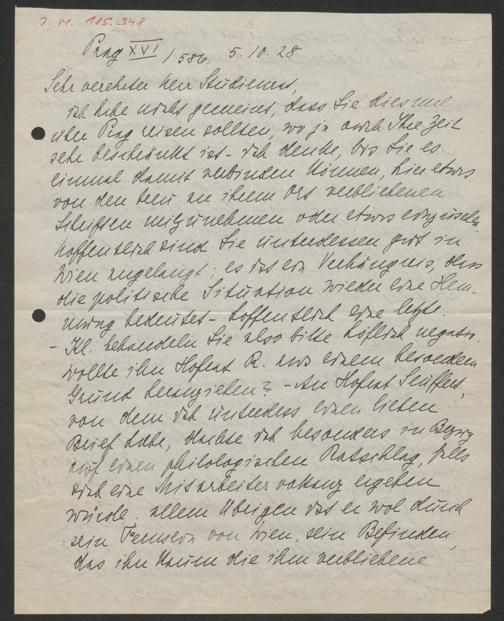 J. N. 185.348
Prag XVI / 586, 5.10.28
Sehr verehrter Herr Studienrat,
ich habe nicht gemeint, dass Sie diesmal
über Prag reisen sollten, wo ja auch Ihre Zeit
sehr beschränkt ist - ich denke, bis Sie es
einmal damit verbinden können, hier etwas
von den an ihrem Ort verbliebenen
Schriften mitzunehmen oder etwas einzusehen.
Hoffentlich sind Sie unterdessen gut in
Wien angelangt; es ist ein Verhängnis, dass
die politische Situation wieder eine Hem-
mung bedeutet - hoffentlich eine letzte.
- Kl. behandeln Sie also bitte höflich negativ.
Wollte ihn Hofrat R. aus einem besonderen
Grund heranziehen? - An Hofrat Seuffert,
von dem ich unterdess einen lieben
Brief habe, dachte ich besonders in Bezug
auf einen philologischen Ratschlag, falls
sich eine Mitarbeiter vakanz ergeben
würde. allem übrigen ist er wol durch
sein Fernsein von Wien, sein Befinden,
das ihn kaum die ihm verbliebene